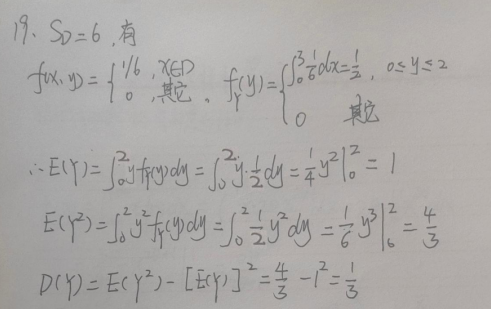 19. S_D=6, 有
f(x,y)={1/6, x∈D; 0, 其它. f_Y(y)={∫_0^3 1/6 dx=1/2, 0≤y≤2; 0 其它
∴E(Y)=∫_0^2 y f_Y(y)dy=∫_0^2 y·1/2 dy=1/4 y²|_0^2=1
E(Y²)=∫_0^2 y² f_Y(y)dy=∫_0^2 1/2 y² dy=1/6 y³|_0^2=4/3
D(Y)=E(Y²)-[E(Y)]²=4/3-1²=1/3